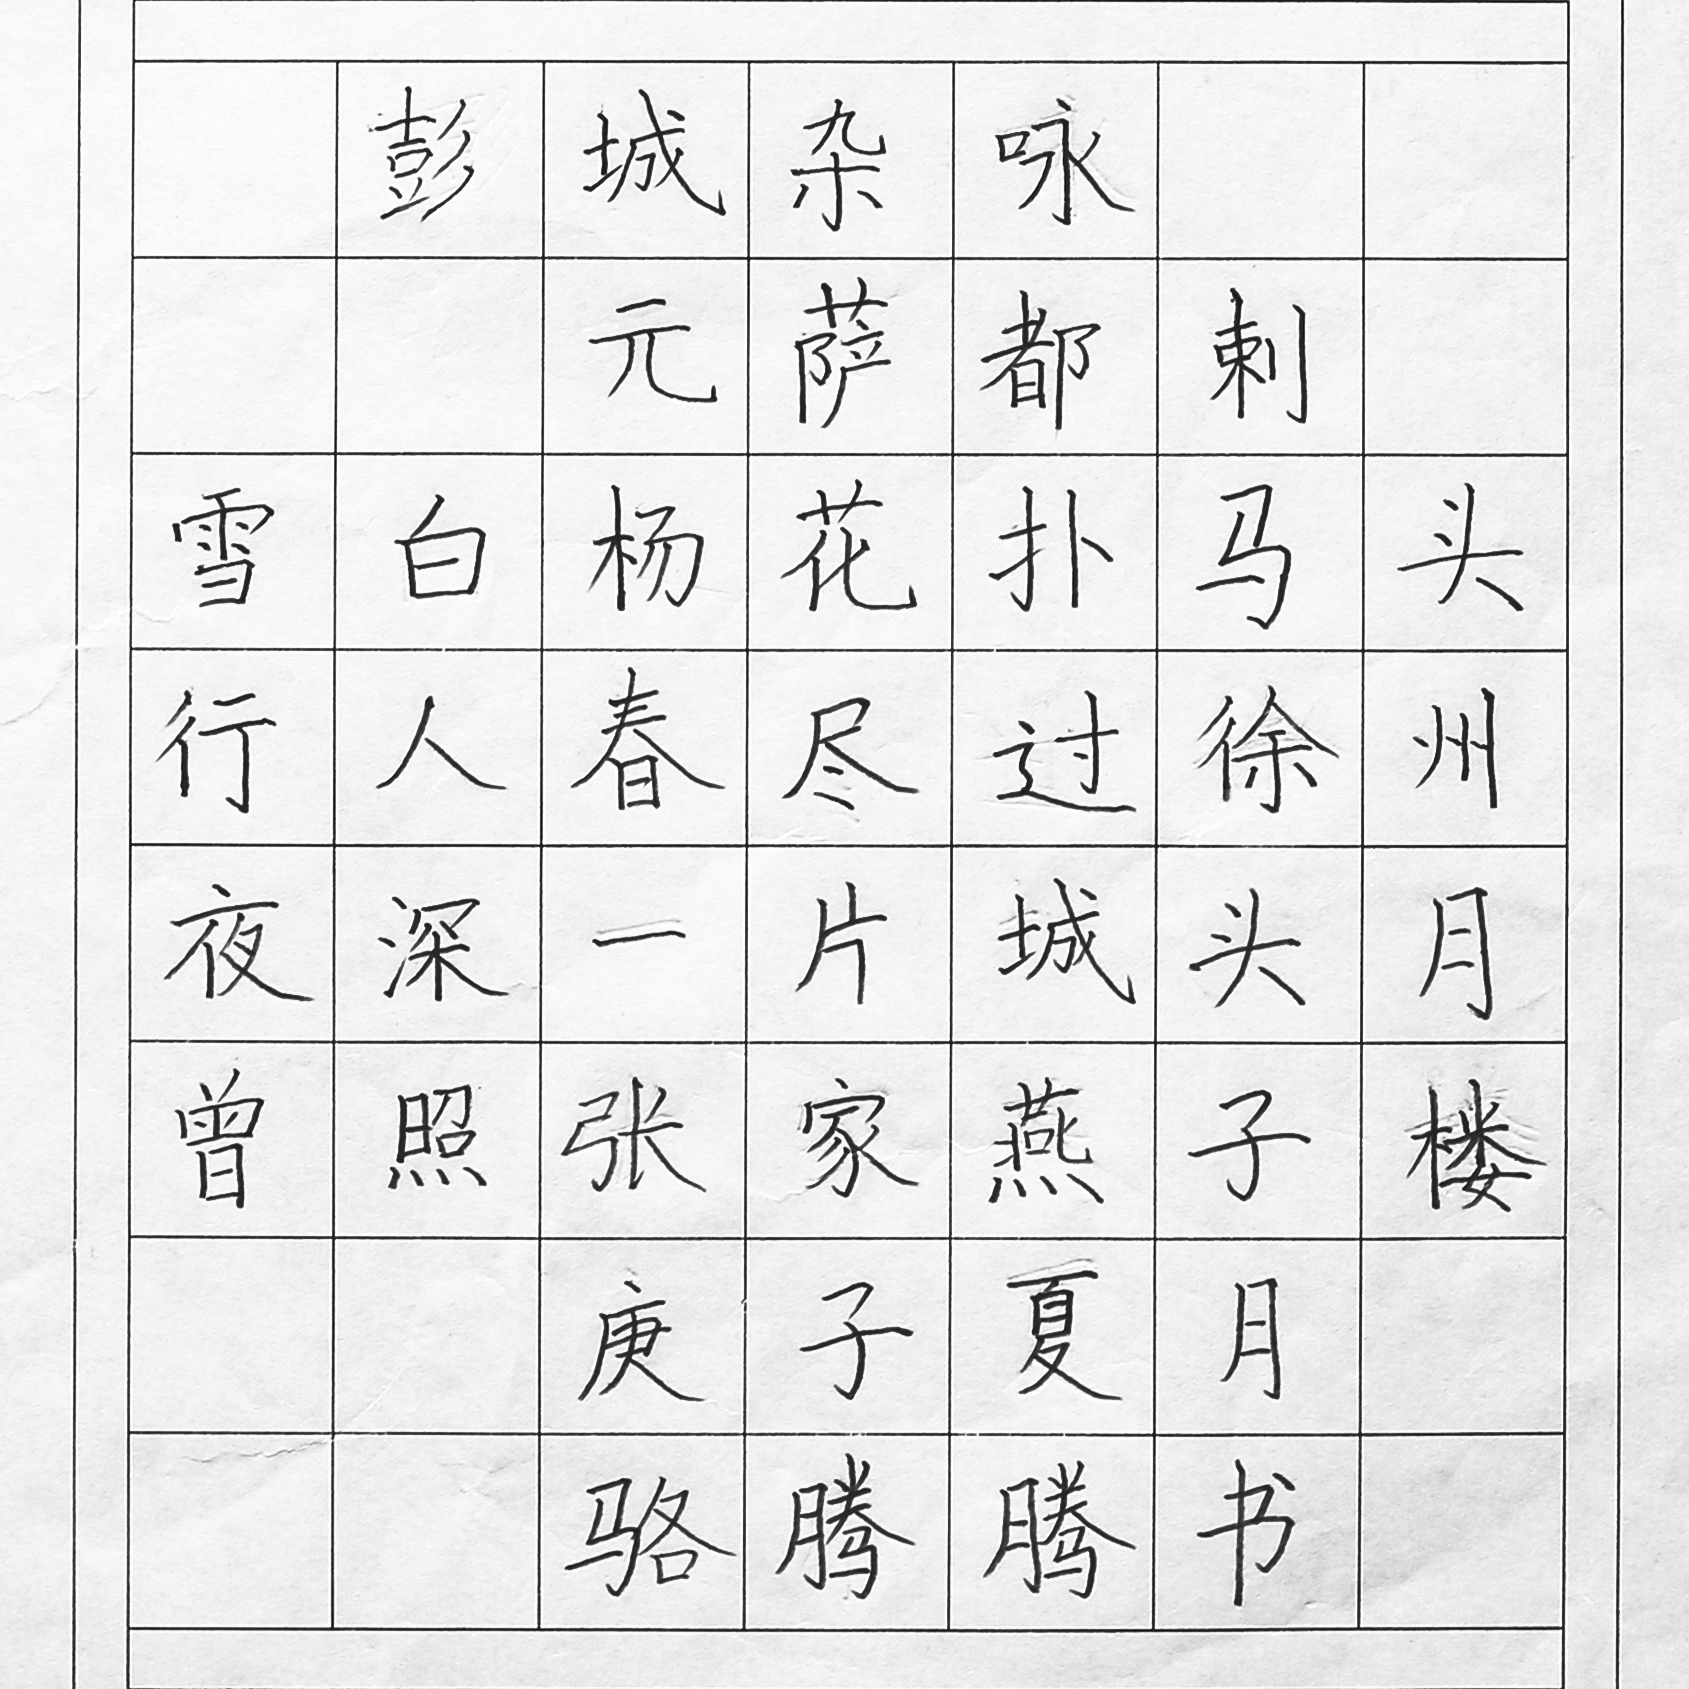 彭城杂咏
元萨都剌
雪白杨花扑马头
行人春尽过徐州
夜深一片城头月
曾照张家燕子楼
庚子夏月
骆腾腾书